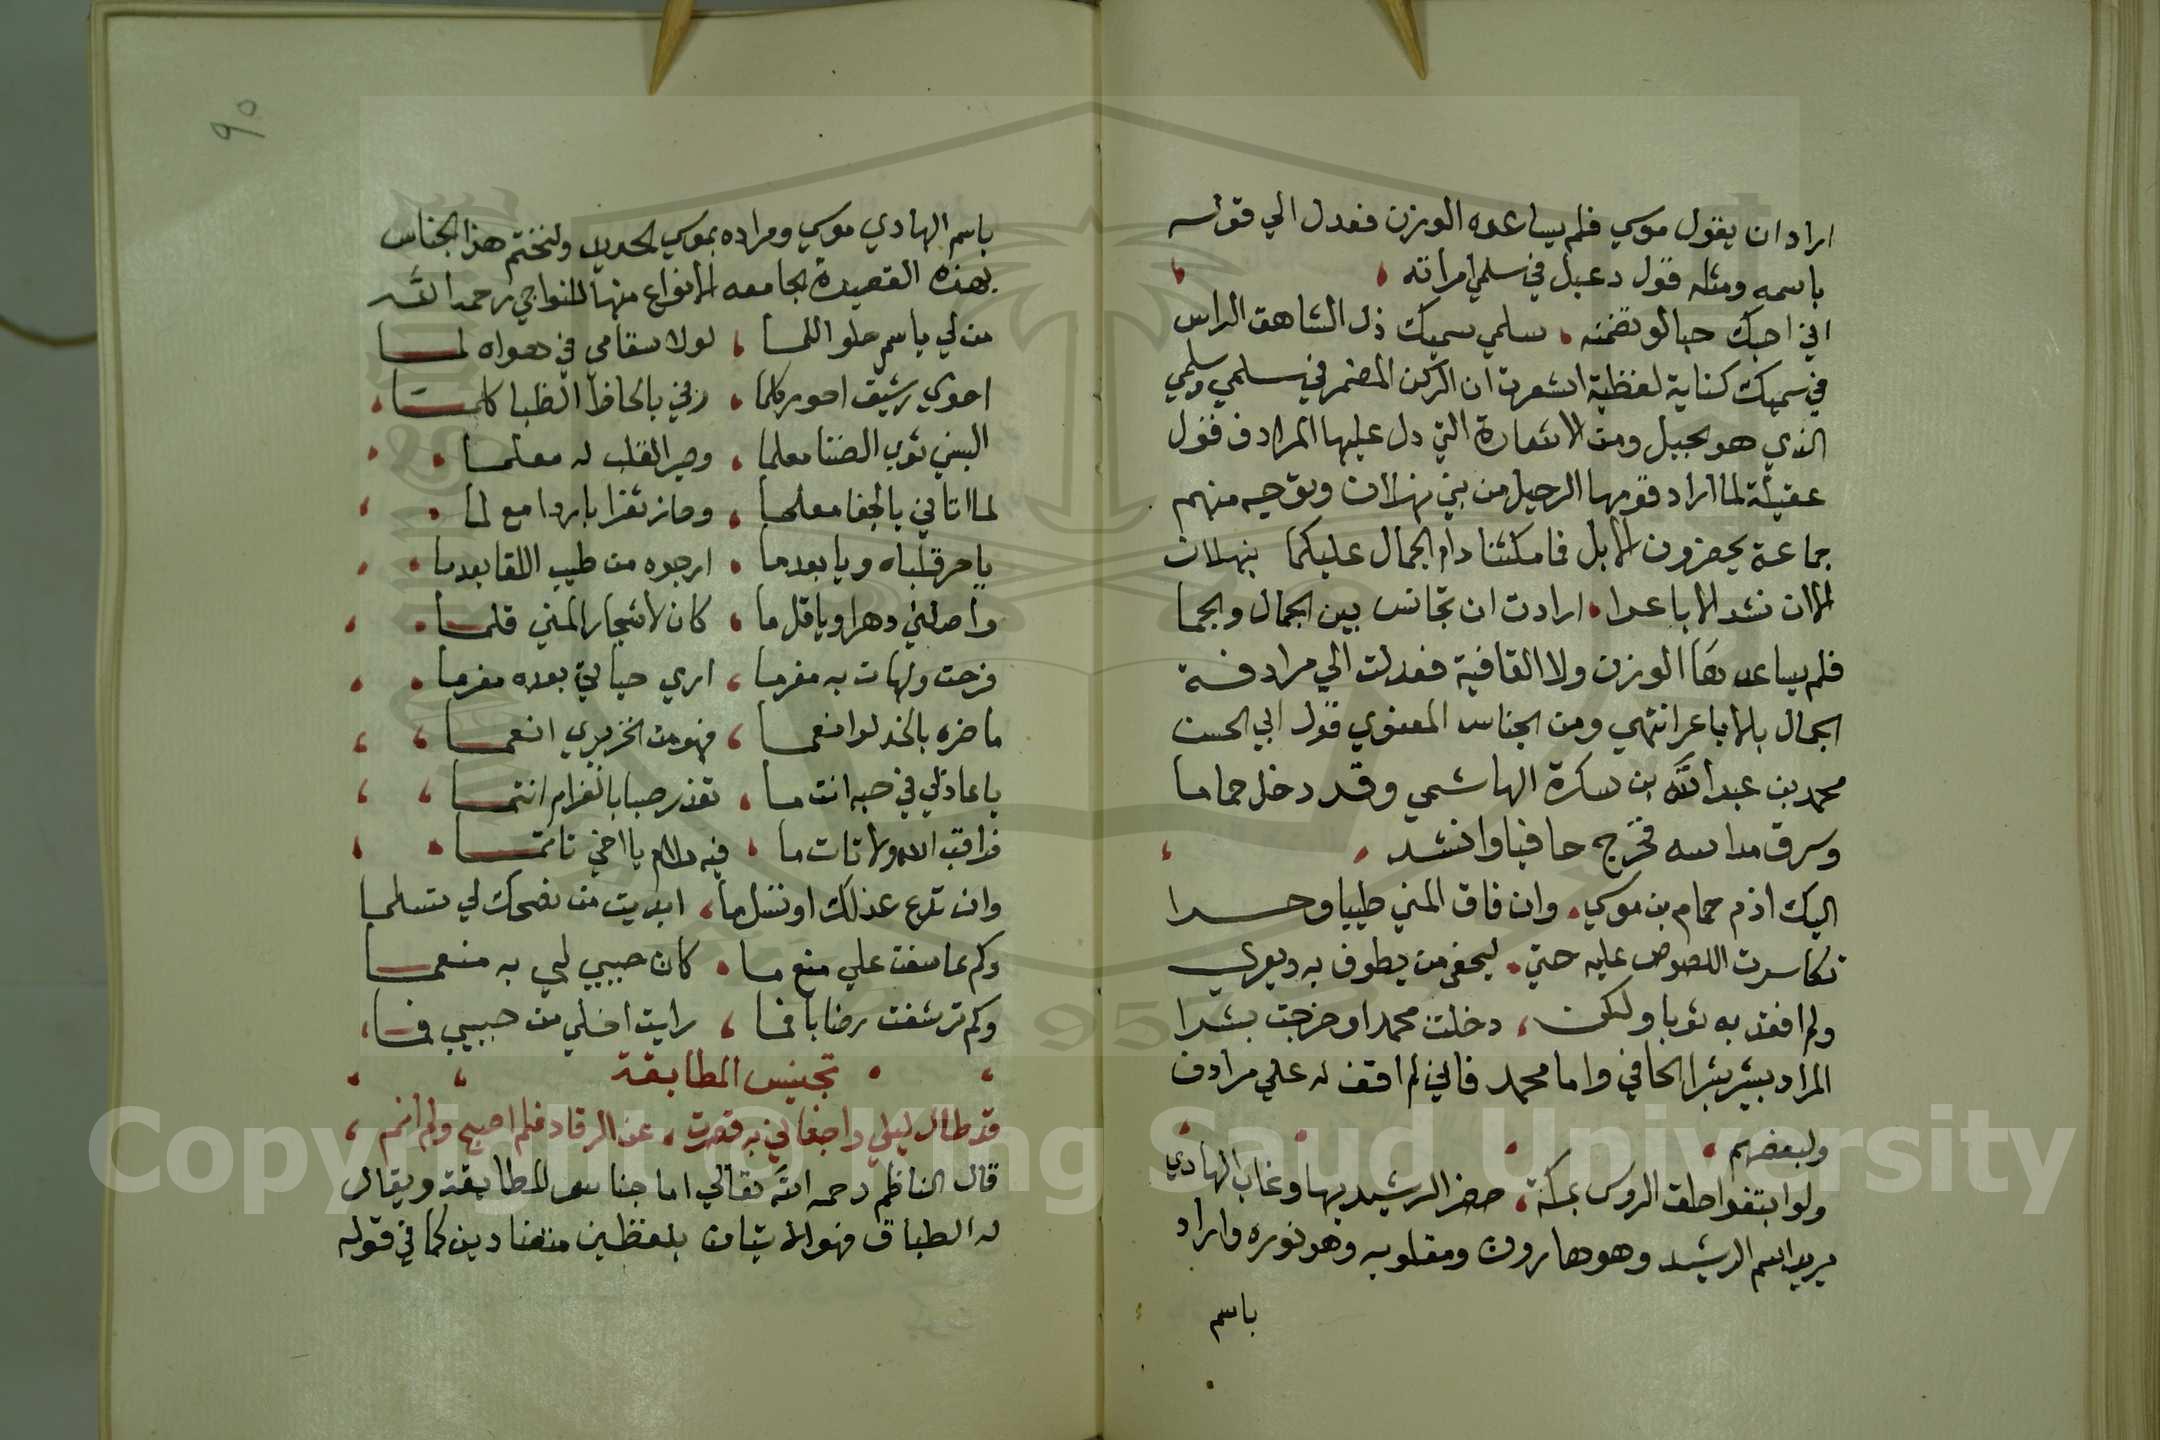 اراد ان يقول موسي فلم يساعده الوزن فعدل الي قوله
باسمه ومثله قول دعبل في سلمي امراته
اني احبك حبا لو تضمنه سلمي سميك ذل الشاهق الراس
في سميك كناية لفظية اشعرت ان الركن المضمر في سلمي وسلمي
الذي هو الجبل ومن الاشارة التي دل عليها المرادف قول
عقيلة لما اراد قومها الرحيل من بني ثهلان وتوجه منهم
جماعة يحضرون الابل فما مكثنا دام الجمال عليكما بثهلان
الا ان تشد الاباعرا ارادت ان تجانس بين الجمال والجما
فلم يساعدها الوزن ولا القافية فعدلت الي مرادفة
الجمال بالاباعر انتهي ومن الجناس المعنوي قول ابي الحسن
محمد بن عبد الله بن سكرة الهاشمي وقد دخل حماما
وسرق مداسه فخرج حافيا وانشد
اليك اذم حمام بن موسي وان فاق المني طيبا وحرا
تكاسرت اللصوص عليه حتي ليحفي من يطوف به ويعري
ولم افقد به ثوبا ولكن دخلت محمدا وخرجت بشرا
المراد ببشر بشر الحافي واما محمد فاني لم اقف له علي مرادف
ولبعضهم
ولو ابتغوا حلق الروس بمكة حضر الرشيد بها وغاب الهادي
يريد اسم الرشيد وهو هارون ومقلوبه وهو نوره واراد
باسم
٩٠
باسم الهادي موسي ومراده بموسي الحديد ولنختم هذا الجناس
بهذه القصيدة الجامعه لانواع منها للنواجي رحمه الله
من لي باسم حلو اللما لولا سقامي في هواه لما
احوي رشيق احور كلما رني بالحاظ الظبا كلما
البسني ثوب الضنا معلما وصير القلب له معلما
لما اتاني بالجفا معلما وحاز ثغرا باردا مع لما
يا حر قلباه ويا بعد ما ارجوه من طيب اللقا بعدما
واصلني دهرا ويا قل ما كان لاشجار المني قلما
فرحت ولهان به مغرما اري حياتي بعده مغرما
ما ضره بالخد لو انعما فهو من الخز يري انعما
يا عاذلي في حبه انت ما تعذر صبا بالغرام انتما
فراقب الله ولا تات ما فيه ملام يا اخي تاتما
وان تدع عذلك او تسل ما ابديت من نصحك لي تسلما
وكم عاسفت علي منع ما كان حبيبي لي به منعما
وكم ترشفت رضابا فما رايت احلي من حبيبي فما
تجنيس المطابقة
قد طال ليلي واجفاني به قصرت عن الرقاد فلم اصبح ولم انم
قال الناظم رحمه الله تعالي اما جناس المطابقة ويقال
له الطباق فهو الاتيان بلفظين متضادين كما في قوله
Copyright © King Saud University